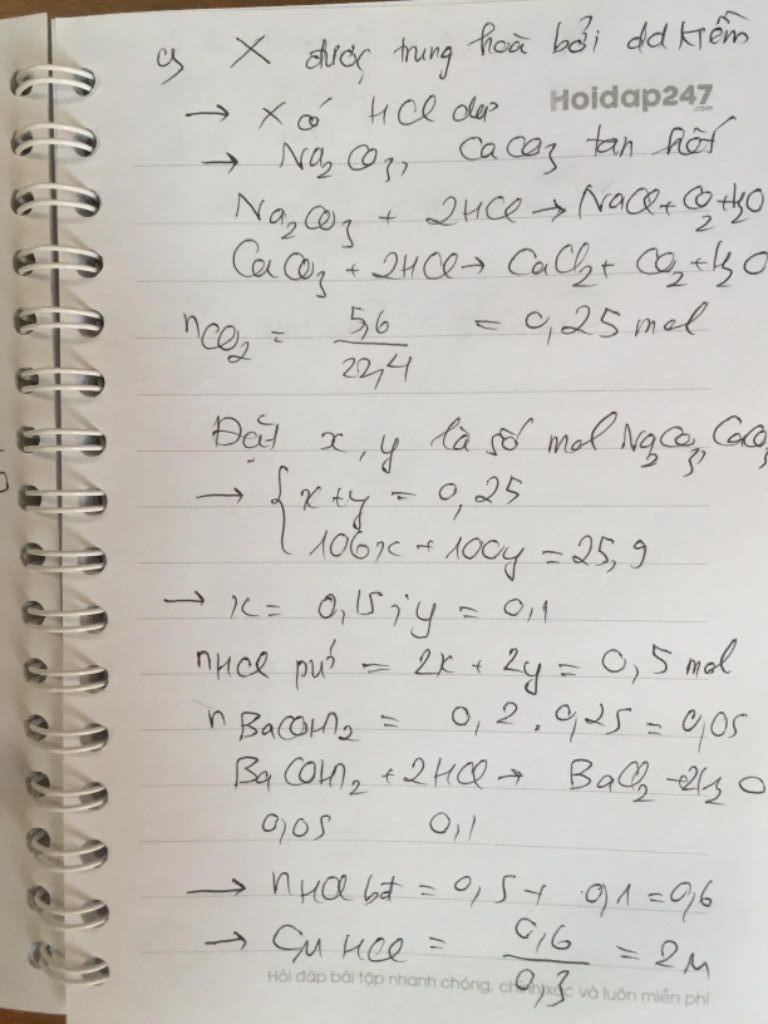 a, X được trung hoà bởi dd kiềm
Hoidap247
.com
→ X có HCl dư
→ Na2CO3, CaCO3 tan hết
Na2CO3 + 2HCl → NaCl + CO2 + H2O
CaCO3 + 2HCl → CaCl2 + CO2 + H2O
nCO2 = 5,6 / 22,4 = 0,25 mol
Đặt x, y là số mol Na2CO3, CaCO3
→ { x + y = 0,25
106x + 100y = 25,9
→ x = 0,15; y = 0,1
nHCl pứ = 2x + 2y = 0,5 mol
nBa(OH)2 = 0,2 . 0,25 = 0,05
Ba(OH)2 + 2HCl → BaCl2 + 2H2O
0,05 0,1
→ nHCl bđ = 0,5 + 0,1 = 0,6
→ CM HCl = 0,6 / 0,3 = 2M
Hỏi đáp bài tập nhanh chóng, chính xác và luôn miễn phí